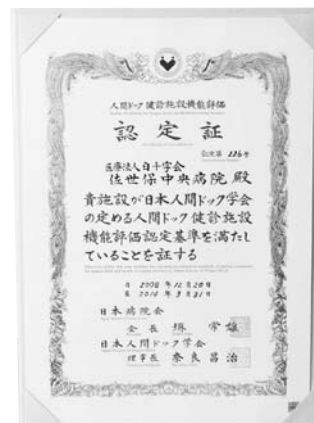 人間ドック健診施設機能評価
認定証
認定第 226号
医療法人白十字会
佐世保中央病院 殿
貴施設が日本人間ドック学会
の定める人間ドック健診施設
機能評価認定基準を満たし
ていることを証する
自 2008年12月20日
至 2014年3月31日
日本病院会
会長 堺 常雄
日本人間ドック学会
理事長 奈良昌治